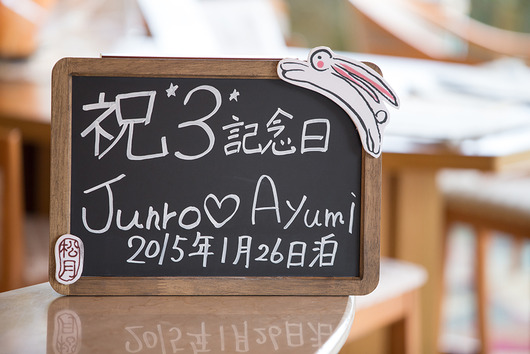 祝3記念日
Junro♡Ayumi
2015年1月26日泊
松月